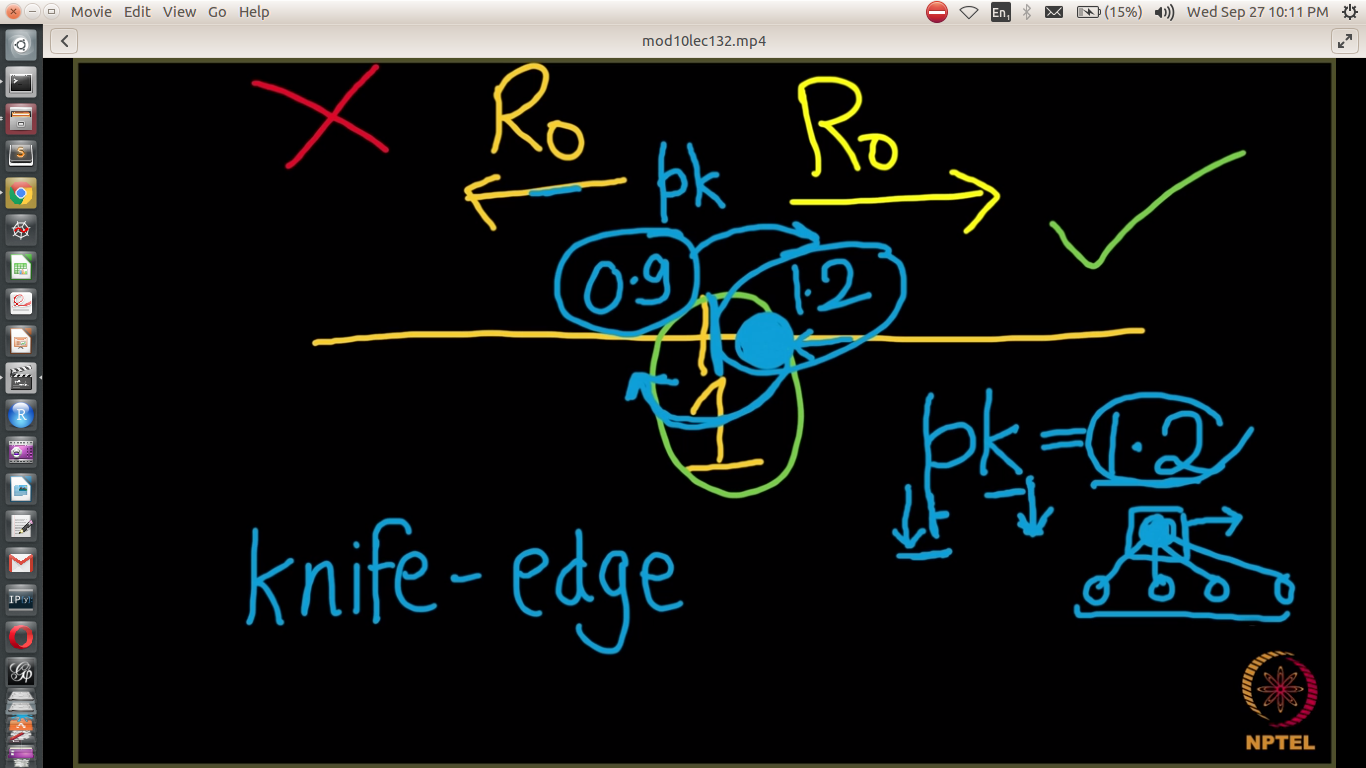 Movie Edit View Go Help
En1 (15%) Wed Sep 27 10:11 PM
mod10lec132.mp4
R0 R0
pk
0.9 1.2
1
pk = 1.2
knife-edge
NPTEL